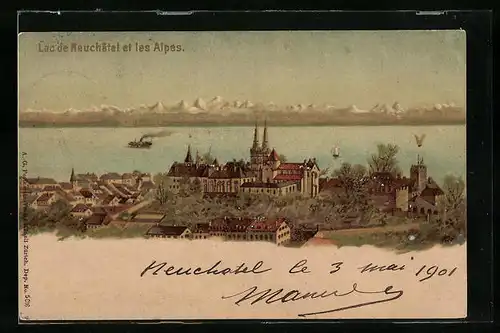 Lac de Neuchâtel et les Alpes.
Neuchatel le 3 mai 1901
Zürich. Dep. No.